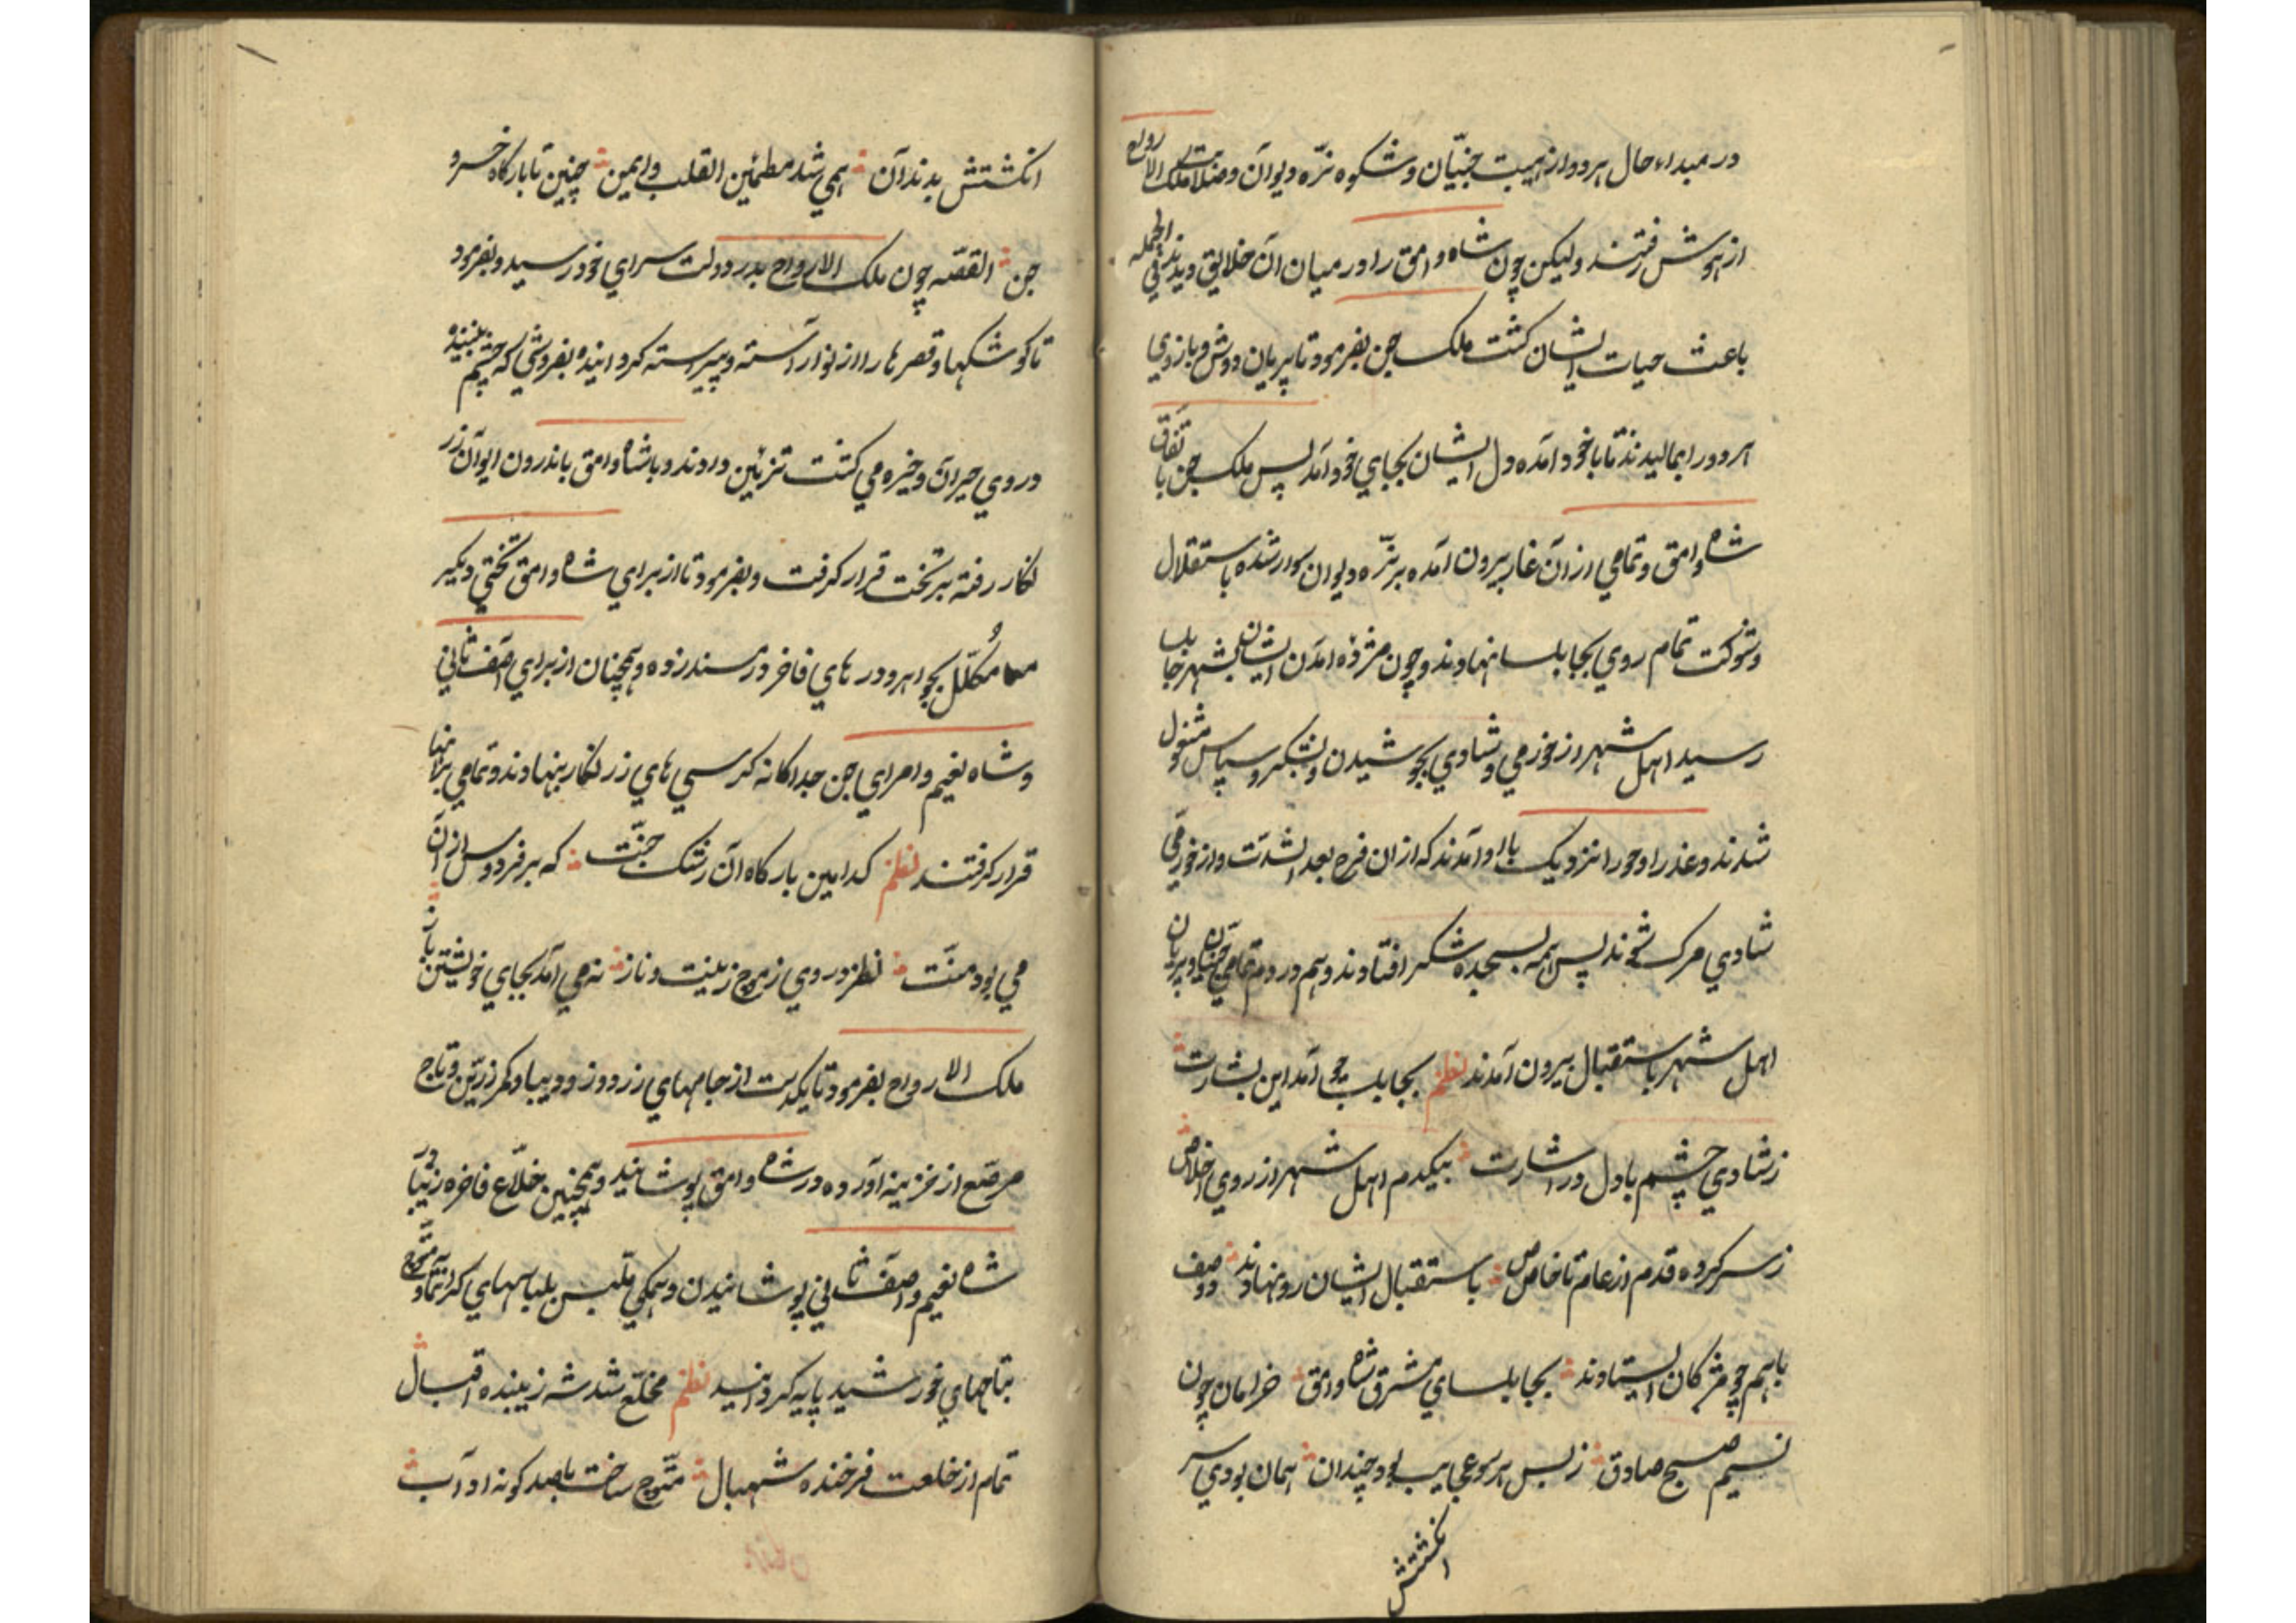 در مبداء حال هر دو از هیبت جنیّان و شکوه نرّه دیوان و صلابت ملک الارواح
از هوش رفتند ولیکن چون شاه وامق را در میان آن خلایق دیدند فی الجمله
باعث حیات ایشان کشت ملک جن بفرمود تا پریان دوش و بازوی
هر دو را بمالیدند تا با خود آمده دل ایشان بجای خود آمد پس ملک جن باتفاق
شاه وامق و تمامی از آن غار بیرون آمده بر نرّه دیوان سوار شده باستقلال
و شوکت تمام روی بجابلسا نهادند و چون مژده آمدن ایشان بشهر جابلسا
رسید اهل شهر از خورمی و شادی بجوشیدن و بشکر و سپاس مشغول
شدند و عذرا و حورا نزدیک بااو آمدند که از ان فرح بعد الشدّت و از خورمی
شادی مرک شوند پس همه بسجده شکر افتادند و هم در دم تمامی جنیان و پریان
اهل شهر باستقبال بیرون آمدند نظم بجابلسا چو آمد این بشارت
ز شادی چشم با دل در اشارت بیکدم اهل شهر از روی اخلاص
ز سر کرده قدم از عام تا خاص باستقبال ایشان رو نهادند دو صف
باهم چو مژکان ایستادند بجابلسای مشرق شاه وامق خرامان چون
نسیم صبح صادق ز بس هر سو عجایب بود چندان همان بودی سر
انکشتش
انکشتش بدندان همی شد مطمئین القلب و ایمن چنین تا بارکاه خسرو
جن القصّه چون ملک الارواح بدر دولت سرای خود رسید و بفرمود
تا کوشکها و قصرها را از نو آراسته و پیراسته کردانیده بفروشی که چشم بیننده
در وی حیران و خیره می کشت تزئین دادند و با شاه وامق باندرون ایوان زر
نکار رفته بر تخت قرار کرفت و بفرمود تا از برای شاه وامق تختی دیکر
مکلّل بجواهر و در های فاخر در مسند زده و همچنان از برای آصف ثانی
و شاه نعیم و امرای جن جداکانه کرسی های زر نکار بنهادند و تمامی بر آنها
قرار کرفتند نظم کدامین بارکاه آن رشک جنّت که بر فردوس از آن
می بود منّت نظر در وی ز موج زینت و ناز نمی آمد بجای خویشتن باز
ملک الارواح بفرمود تا یکدست از جامهای زر دوز و دیبا و کمر زرّین و تاج
مرصّع از خزینه آورده در شاه وامق پوشانید و همچنین خلّاع فاخره زیبا در
شاه نعیم و آصف ثانی پوشانیدن و همکی ملّبس بلباسهای کرانمایه و متّوج
بتاجهای خورشید پایه کردانید نظم مخلّع شد شه زیبنده اقبال
تمام از خلعت فرخنده شهبال متّوج ساخت باصد کونه اداب